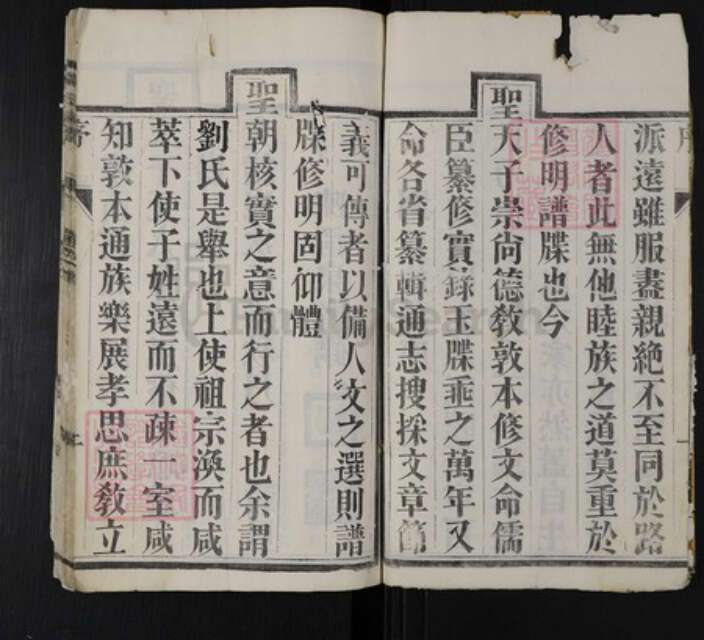 派遠雖服盡親絶不至同於路
人者此無他睦族之道莫重於
修明譜牒也今
聖天子崇尚德敎敦本修文命儒
臣纂修實錄玉牒垂之萬年又
命各省纂輯通志搜採文章節
義可傳者以備人文之選則譜
牒修明固仰體
聖朝核實之意而行之者也余謂
劉氏是舉也上使祖宗渙而咸
萃下使子姓遠而不疎一室咸
知敦本通族樂展孝思庶敎立
序